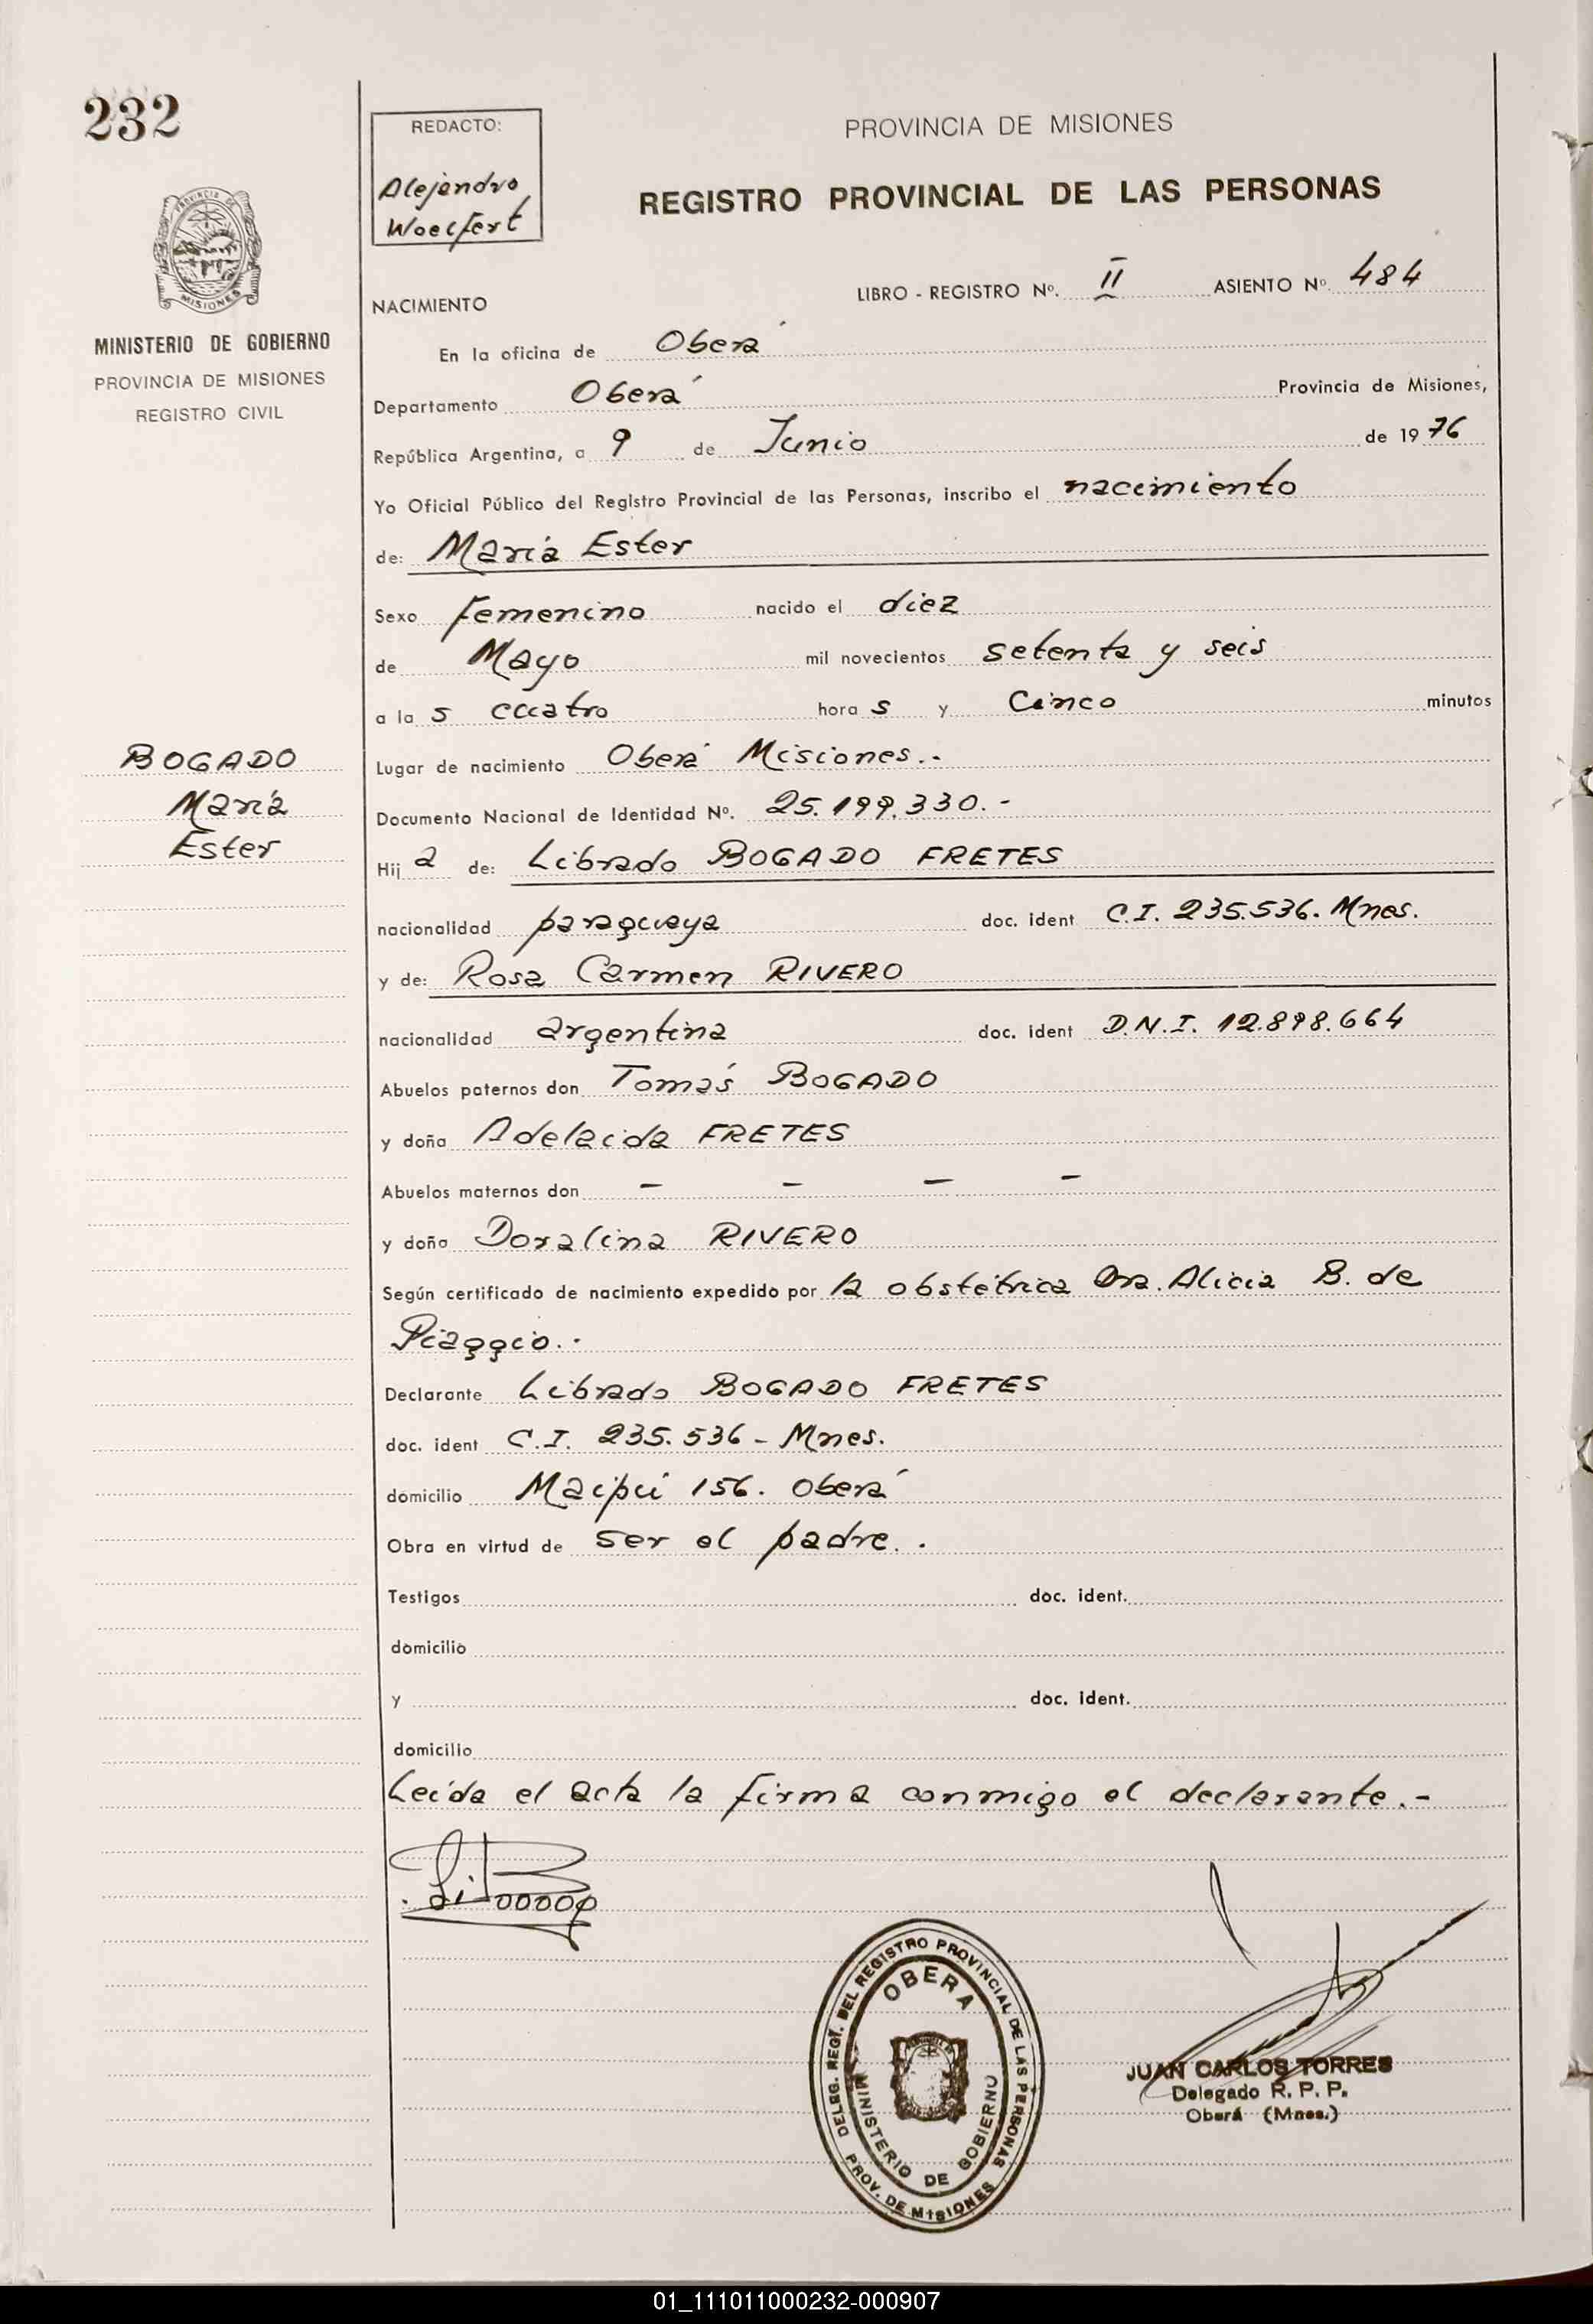 232
REDACTO:
Alejandro
Woelfert
PROVINCIA DE MISIONES
REGISTRO PROVINCIAL DE LAS PERSONAS
MISIONES
MINISTERIO DE GOBIERNO
PROVINCIA DE MISIONES
REGISTRO CIVIL
LIBRO - REGISTRO Nº. II ASIENTO Nº. 484
NACIMIENTO
En la oficina de Oberá
Departamento Oberá Provincia de Misiones,
República Argentina, a 9 de Junio de 1976
Yo Oficial Público del Registro Provincial de las Personas, inscribo el nacimiento
de: María Ester
Sexo femenino nacido el diez
de Mayo mil novecientos setenta y seis
a la s cuatro hora s y Cinco minutos
BOGADO
María
Ester
Lugar de nacimiento Oberá Misiones.-
Documento Nacional de Identidad Nº. 25.199.330.-
Hij a de: Librado BOGADO FRETES
nacionalidad paraguaya doc. ident C.I. 235.536. Mnes.
y de: Rosa Carmen RIVERO
nacionalidad argentina doc. ident D.N.I. 12.898.664
Abuelos paternos don Tomás BOGADO
y doña Adelaida FRETES
Abuelos maternos don - - - -
y doña Doralina RIVERO
Según certificado de nacimiento expedido por la obstétrica Dra. Alicia B. de
Piaggio.-
Declarante Librado BOGADO FRETES
doc. ident C.I. 235.536 - Mnes.
domicilio Maipú 156. Oberá
Obra en virtud de ser el padre.-
Testigos doc. ident.
domicilio
y doc. ident.
domicilio
Leída el acta la firma conmigo el declarante.-
DELEG. REGT. DEL REGISTRO PROVINCIAL DE LAS PERSONAS
OBERA
MINISTERIO DE GOBIERNO
PROV. DE MISIONES
JUAN CARLOS TORRES
Delegado R. P. P.
Oberá (Mnes.)
01_111011000232-000907